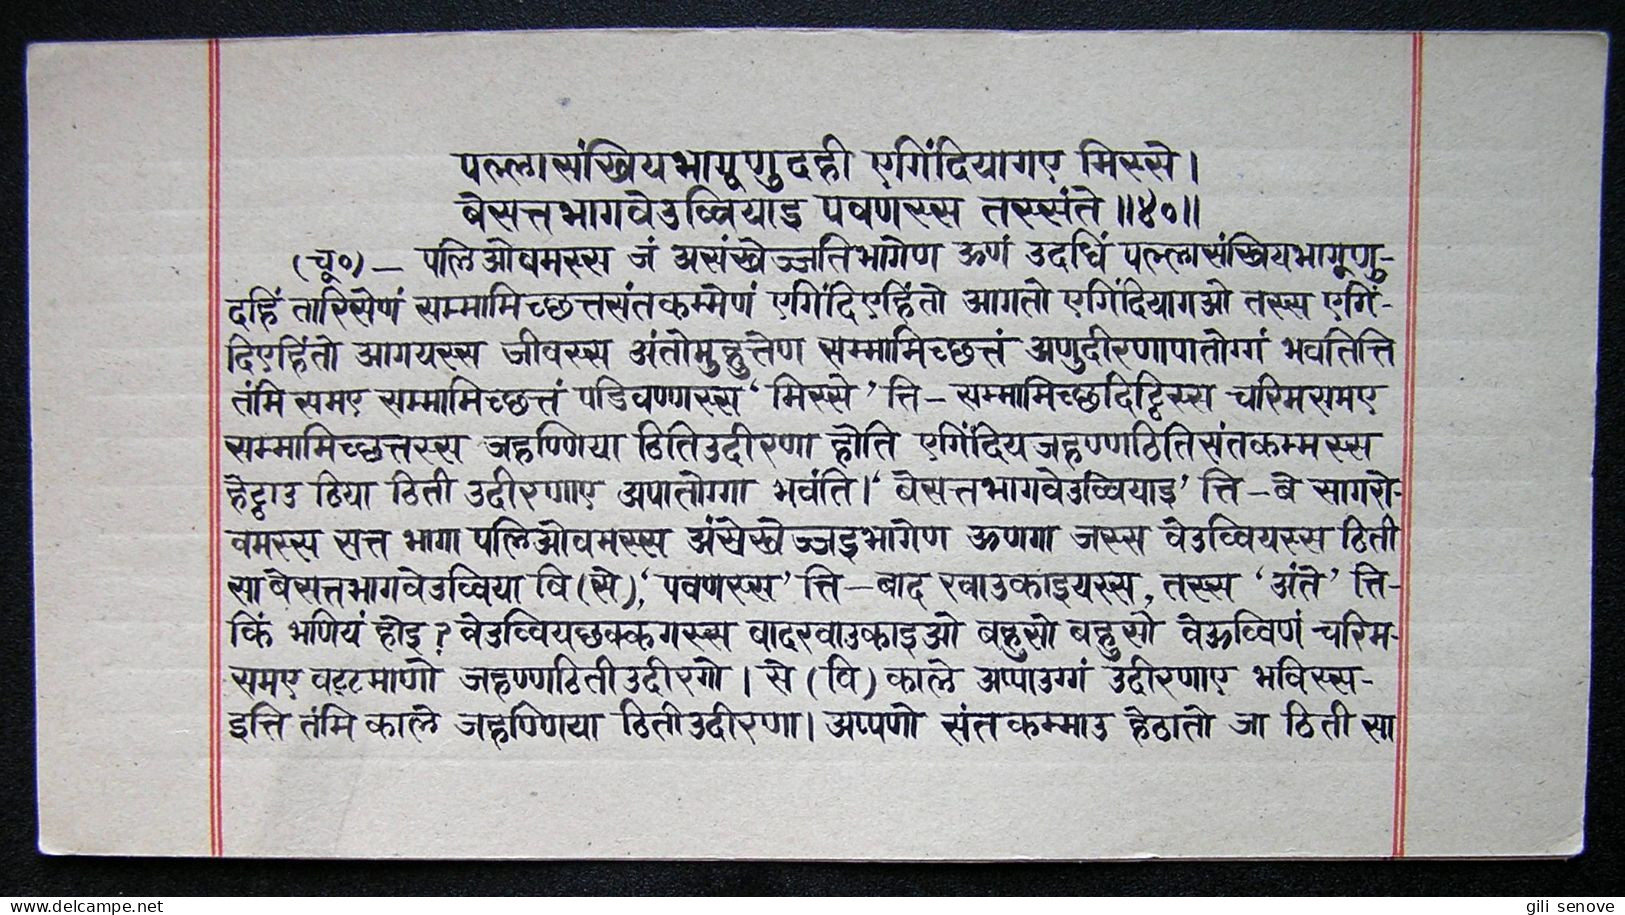 पल्लासंखियभागूणुदही एगिंदियागए मिस्से।
बेसत्तभागवेउव्वियाइ पवणस्स तस्संते॥४०॥
(चू०)— पलिओवमस्स जं असंखेज्जतिभागेण ऊणं उदधिं पल्लासंखियभागूणु-
दहिं तारिसेणं सम्मामिच्छत्तसंतकम्मेणं एगिंदिएहिंतो आगतो एगिंदियागओ तस्स एगिं-
दिएहिंतो आगयस्स जीवस्स अंतोमुहुत्तेण सम्मामिच्छत्तं अणुदीरणापातोग्गं भवतित्ति
तंमि समए सम्मामिच्छत्तं पडिवण्णस्स ‘मिस्से’ त्ति— सम्मामिच्छदिट्ठिस्स चरिमसमए
सम्मामिच्छत्तस्स जहण्णिया ठितिउदीरणा होति एगिंदियजहण्णठितिसंतकम्मस्स
हेट्ठाउ ठिया ठिती उदीरणाए अपातोग्गा भवंति।‘ बेसत्तभागवेउव्वियाइ’ त्ति—बे सागरो-
वमस्स सत्त भागा पलिओवमस्स अंसेखेज्जइभागेण ऊणगा जस्स वेउव्वियस्स ठिती
सा बेसत्तभागवेउव्विया वि (से), ‘पवणस्स’ त्ति—बादरवाउकाइयस्स, तस्स ‘अंते’ त्ति-
किं भणियं होइ? वेउव्वियछक्कगस्स बादरवाउकाइओ बहुसो बहुसो वेऊव्विणं चरिम-
समए वट्टमाणो जहण्णठितीउदीरगो। से (वि) काले अप्पाउग्गं उदीरणाए भविस्स-
इत्ति तंमि काले जहण्णिया ठितीउदीरणा। अप्पणो संतकम्माउ हेठातो जा ठिती सा
gili senove
www.delcampe.net